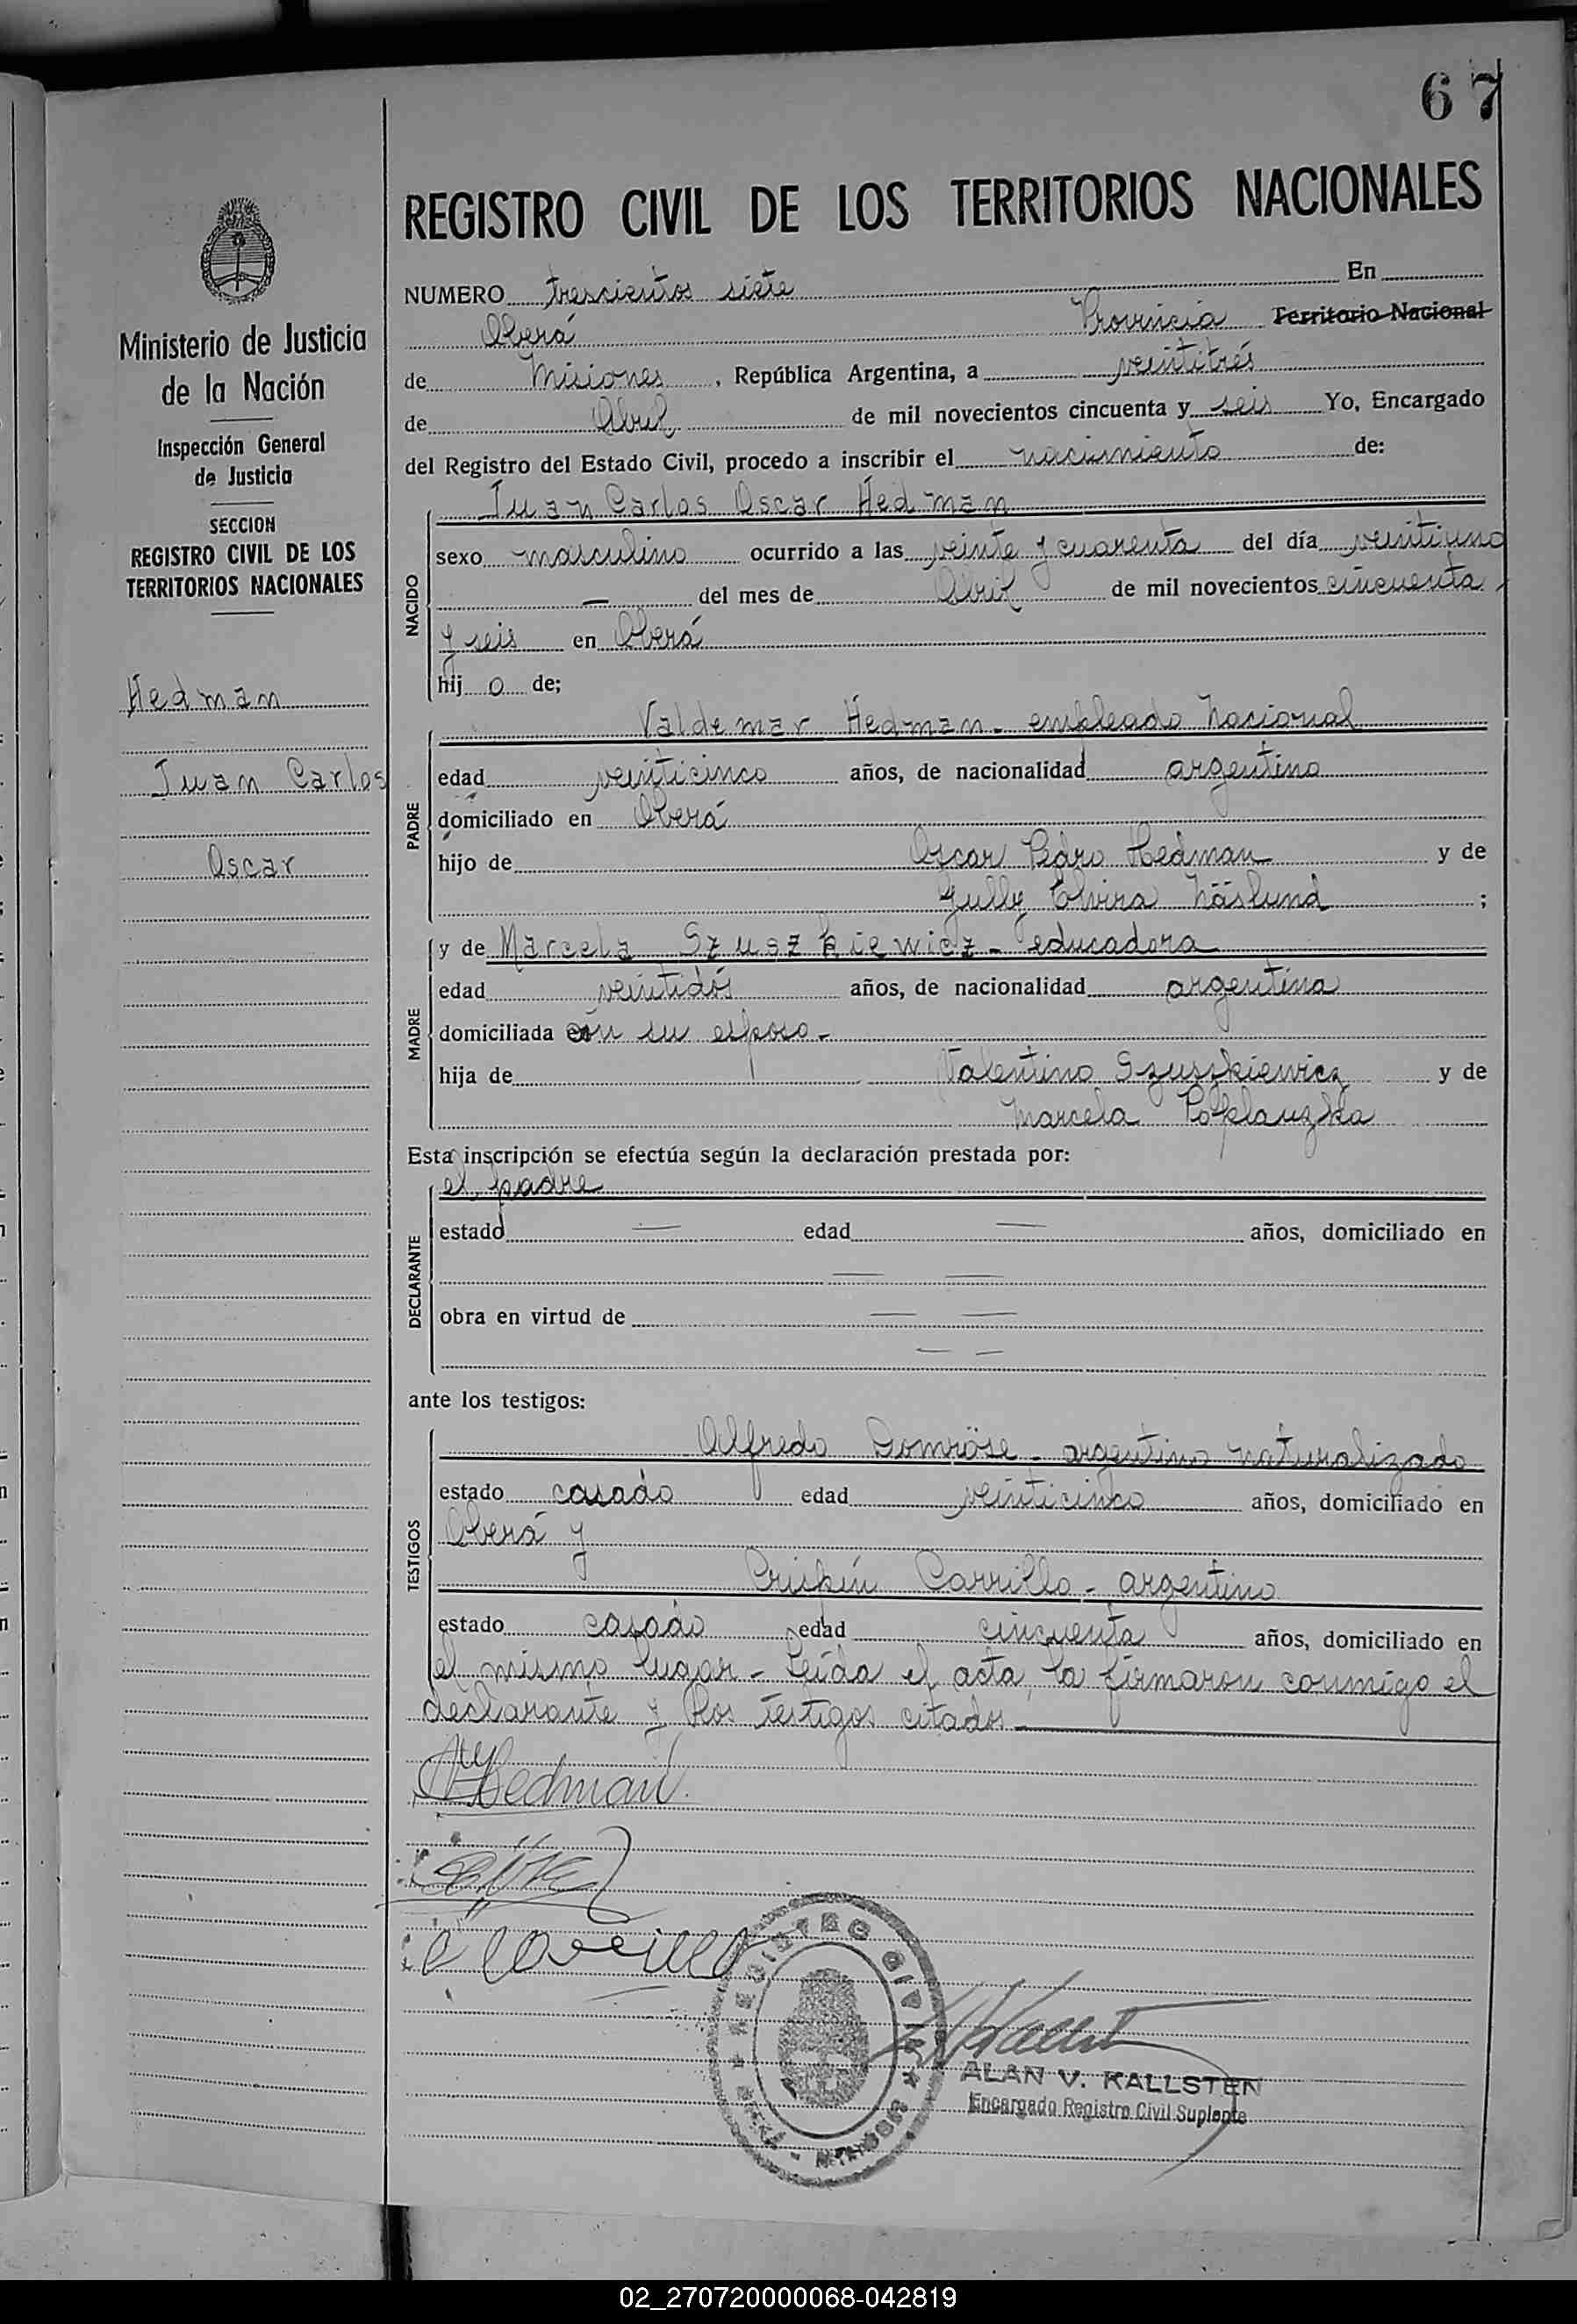 67
REGISTRO CIVIL DE LOS TERRITORIOS NACIONALES
Ministerio de Justicia
de la Nación
Inspección General
de Justicia
SECCION
REGISTRO CIVIL DE LOS
TERRITORIOS NACIONALES
Hedman
Juan Carlos
Oscar
NUMERO trescientos siete En
Oberá Provincia Territorio Nacional
de Misiones, República Argentina, a veintitrés
de Abril de mil novecientos cincuenta y seis Yo, Encargado
del Registro del Estado Civil, procedo a inscribir el nacimiento de:
NACIDO
Juan Carlos Oscar Hedman
sexo masculino ocurrido a las veinte y cuarenta del día veintiuno
— del mes de Abril de mil novecientos cincuenta
y seis en Oberá
hij o de;
PADRE
Valdemar Hedman - empleado Nacional
edad veinticinco años, de nacionalidad argentino
domiciliado en Oberá
hijo de Oscar Pedro Hedman y de
Gully Elvira Näslund ;
MADRE
y de Marcela Szuszkiewicz - educadora
edad veintidós años, de nacionalidad argentina
domiciliada con su esposo -
hija de Valentino Szuszkiewicz y de
Marcela
Esta inscripción se efectúa según la declaración prestada por:
DECLARANTE
el padre
estado — edad — años, domiciliado en
— —
obra en virtud de — —
— —
ante los testigos:
TESTIGOS
Alfredo Domröse - argentino naturalizado
estado casado edad veinticinco años, domiciliado en
Oberá y
Crispín Carrillo - argentino
estado casado edad cincuenta años, domiciliado en
el mismo lugar - Leída el acta, la firmaron conmigo el
declarante y los testigos citados —
Hedman
Carrillo
REGISTRO CIVIL
ALAN V. KALLSTEN
Encargado Registro Civil Suplente
02_270720000068-042819